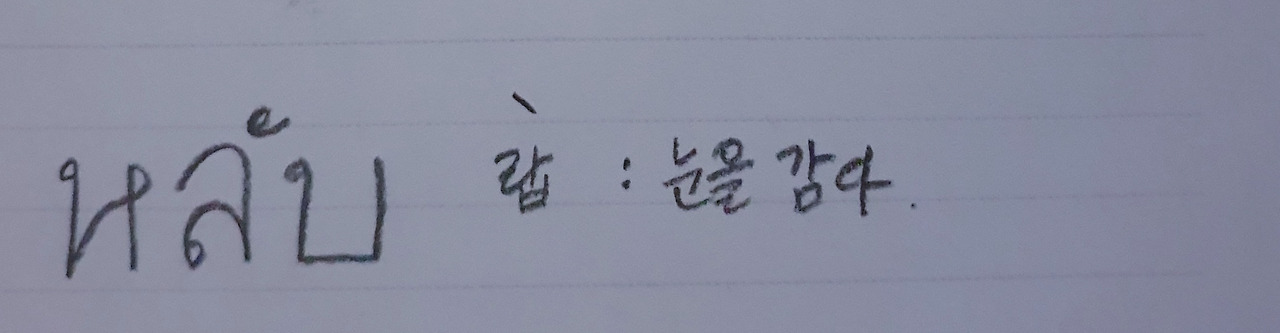 หลับ 랍̀ : 눈을 감다.